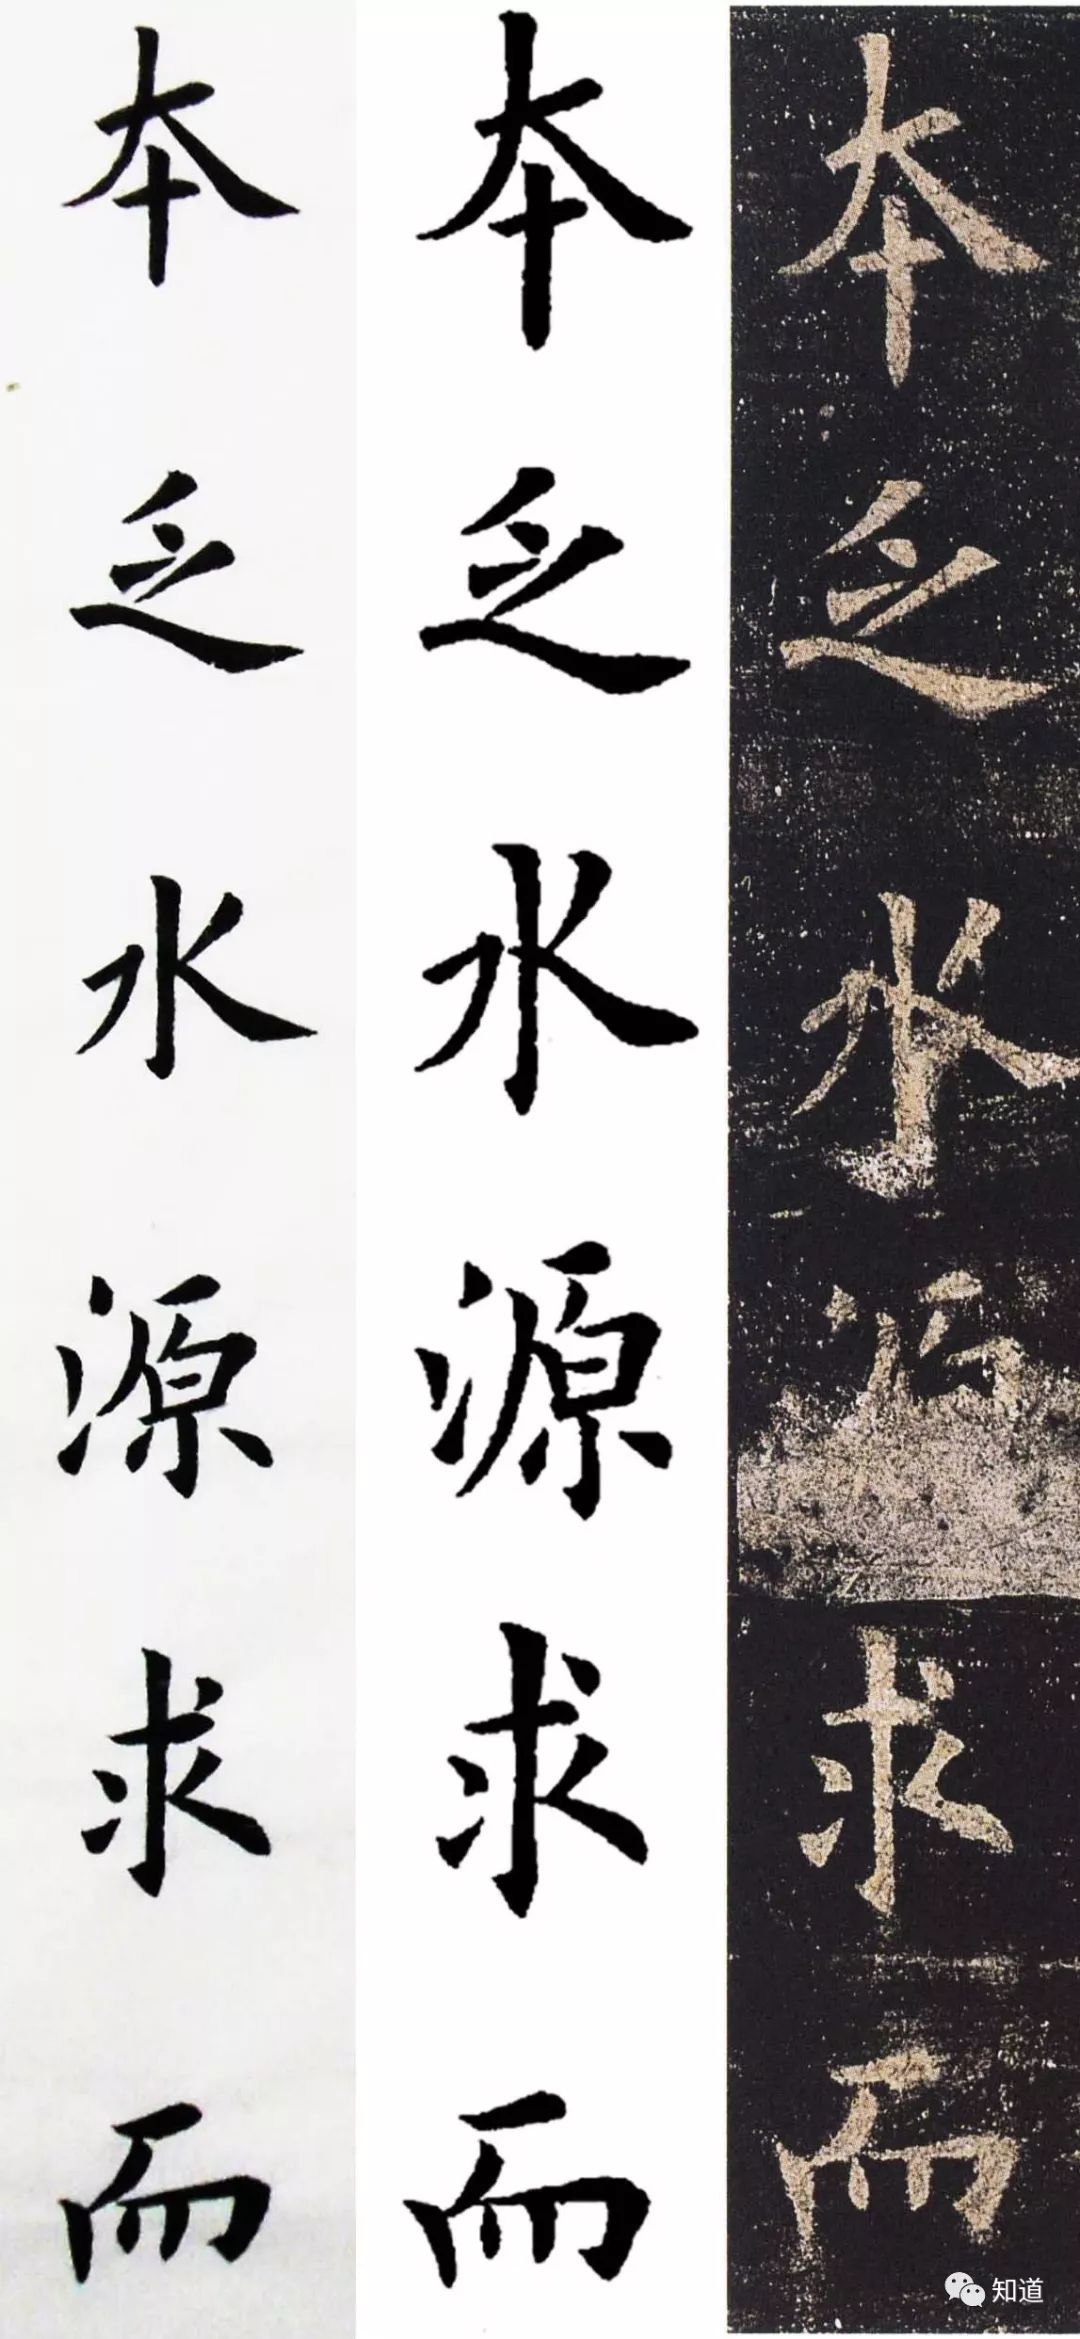 本乏水源求而
本乏水源求而
本乏水源求而
知道